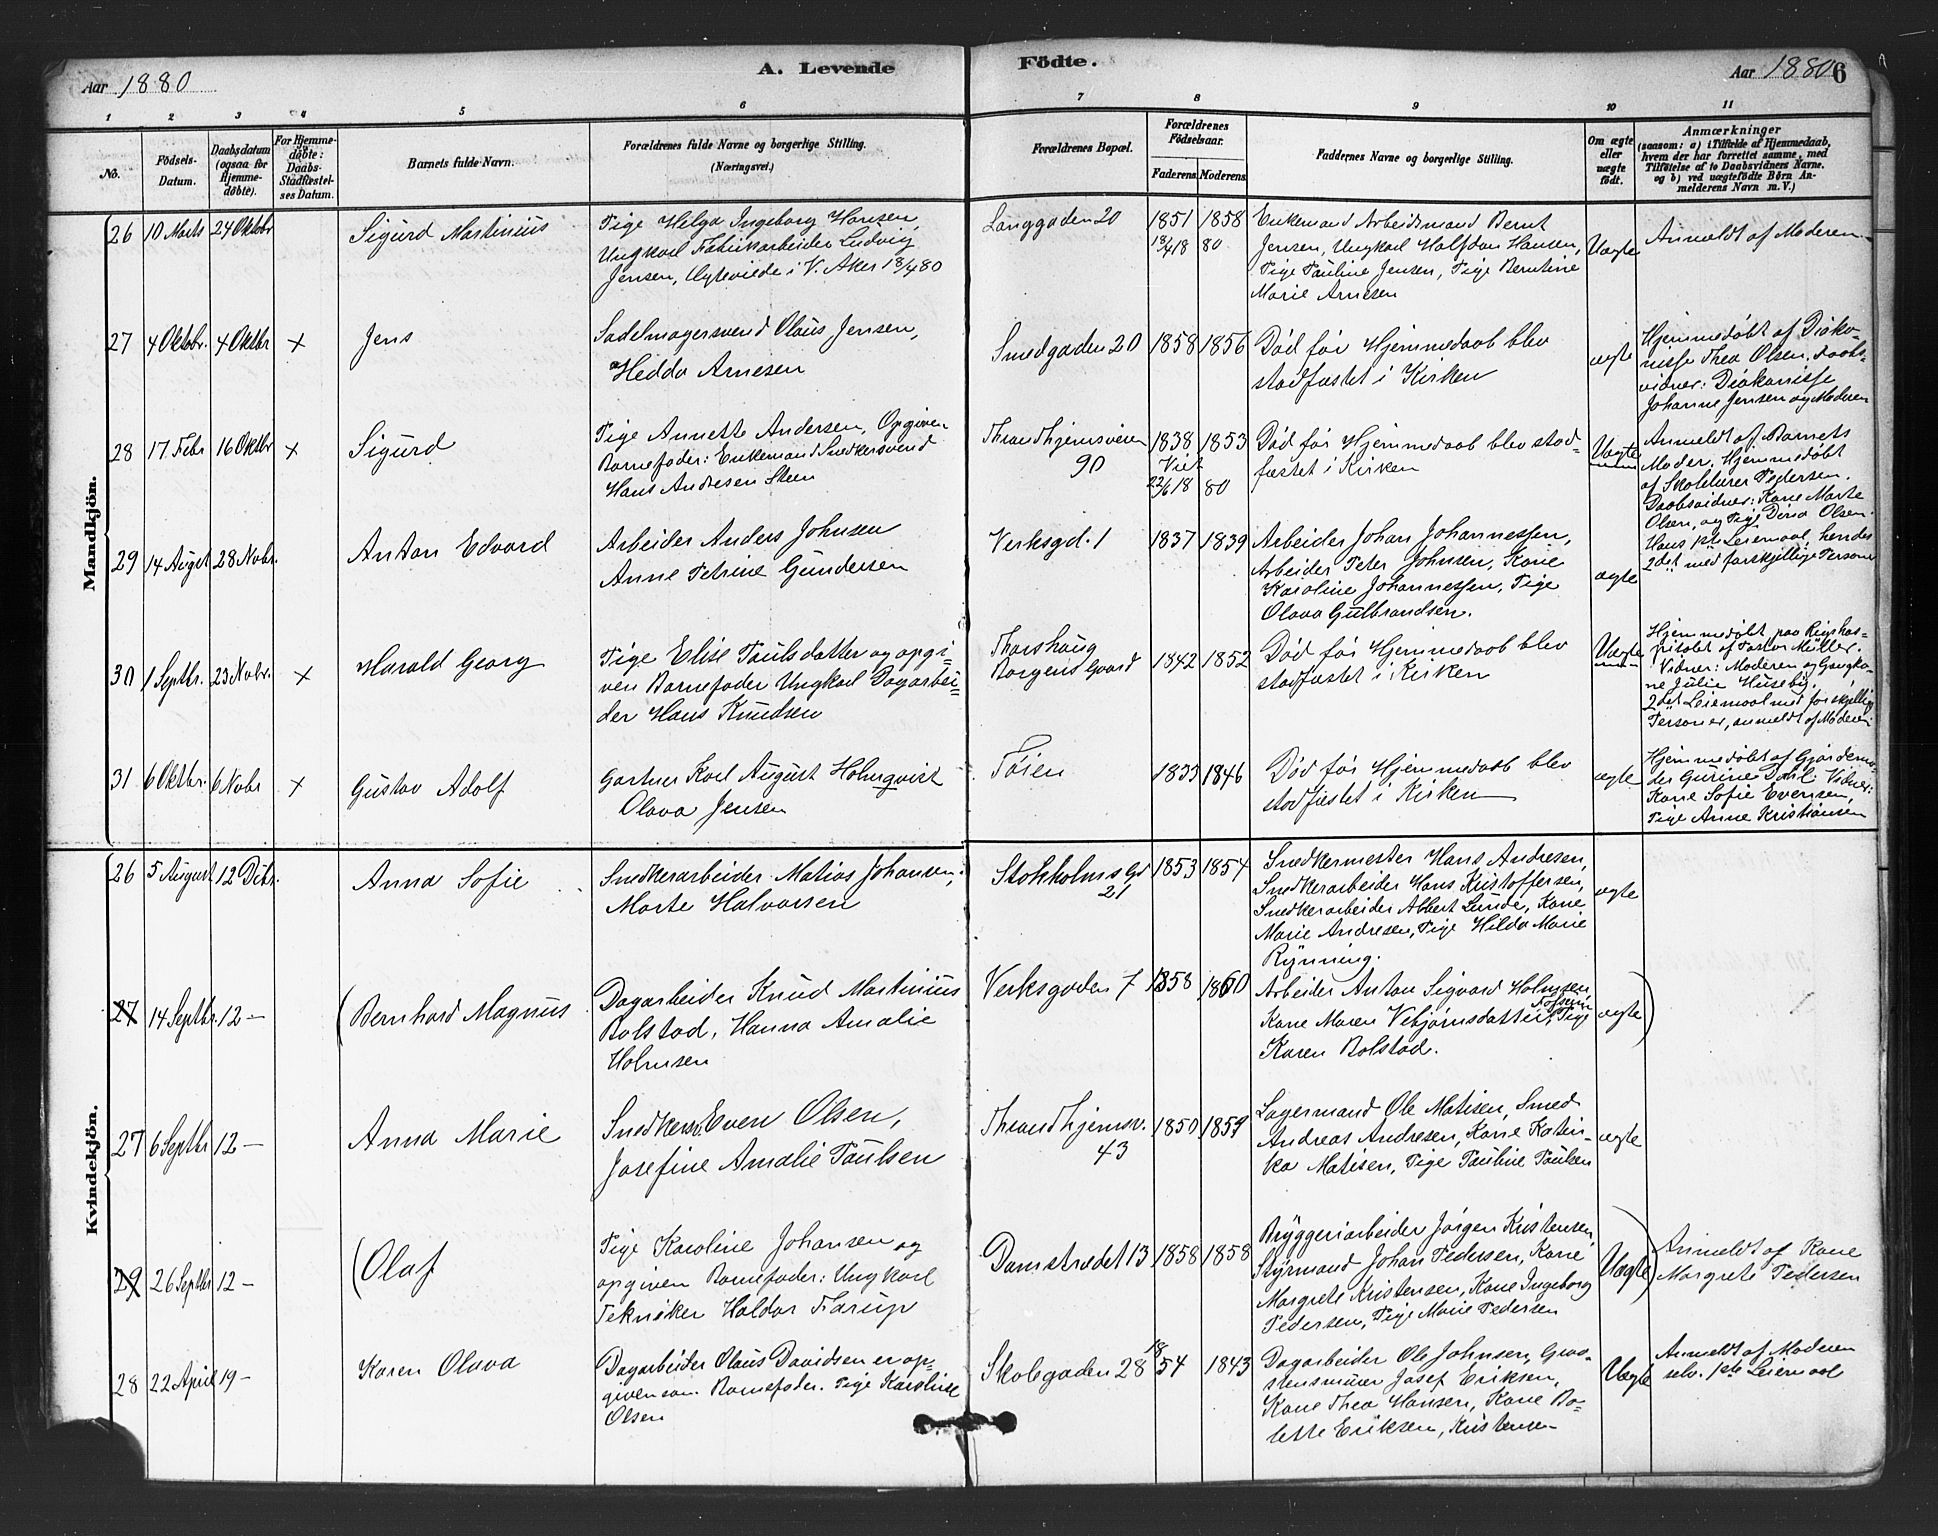 Aar 1880
A. Levende Födte.
Aar 1880 6
1 2 3 4 5 6 7 8 9 10 11
No.
Födsels-Datum.
Daabsdatum (ogsaa for Hjemme-döbte).
For Hjemme-döbte: Daabs-Stadfæstel-ses Datum.
Barnets fulde Navn.
Forældrenes fulde Navne og borgerlige Stilling. (Næringsvei.)
Forældrenes Bopæl.
Forældrenes Födselsaar.
Faderens. Moderens.
Faddernes Navne og borgerlige Stilling.
Om ægte eller uægte födt.
Anmærkninger
(saasom: a) i Tilfælde af Hjemmedaab, hvem der har forrettet samme, med Tilföielse af to Daabsvidners Navne. og b) ved uægtefödte Börn An-melderens Navn m. V.)
Mandkjön.
26 10 Marts 24 Oktobr
Sigurd Martinius
Pige Helga Ingeborg Hansen,
Ungkarl Fabrikarbeider Ludvig
Jensen, Ægteviede i V. Aker 18/4 80
Langgaden 20
1851 1858
18/4 18 80
Enkemand Arbeidsmand Bernt
Jensen, Ungkarl Halfdan Hansen,
Pige Pauline Jensen, Pige Berntine
Marie Arnesen
Uægte
Anmeldt af Moderen
27 4 Oktobr. 4 Oktbr x
Jens
Sadelmagersvend Olaus Jensen,
Hedda Arnesen
Smedgaden 20
1858 1856
Død før Hjemmedaab blev
stadfæstet i Kirken
ægte
Hjemmedøbt af Diako-
nisse Thea Olsen. Daabs-
vidner: Diakonisse
Johanne Jensen og Moderen
28 17 Febr 16 Oktbr x
Sigurd
Pige Annette Andersen, Opgiven
Barnefader: Enkemand Snedkersvend
Hans Andresen Steen
Throndhjemsveien
90
1838 1853
Viet
22/6 18 80
Død før Hjemmedaab blev stad-
fæstet i Kirken
Uægte
Anmeldt af Barnets
Moder. Hjemmedøbt
af Skolelærer Pedersen.
Daabsvidner: Kone Marte
Olsen, og Pige Dina Olsen.
Hans 1ste Leiermaal, hendes
2det med forskjellige Personer
29 14 Augst 28 Novbr.
Anton Edvard
Arbeider Anders Johnsen
Anne Petrine Gundersen
Verksgd. 1
1837 1839
Arbeider Johan Johannessen,
Arbeider Peter Johnsen, Kone
Karoline Johannessen, Pige
Olava Gulbrandsen.
ægte
30 1 Septbr. 23 Novbr. x
Harald Georg
Pige Elise Paulsdatter og opgi-
ven Barnefader Ungkarl Dagarbei-
der Hans Knudsen
Thorshaug
Borgens Gaard
1842 1852
Død før Hjemmedaab blev
stadfæstet i Kirken
Uægte
Hjemmedøbt paa Rigshos-
pitalet af Pastor Müller.
Vidner: Moderen og Gangko-
ne Julie Huseby.
2det Leiermaal med forskjellig
Personer, anmeldt af Moderen
31 6 Oktbr. 6 Novbr x
Gustav Adolf
Gartner Karl August Holmqvist
Olava Jensen
Tøien
1833 1846
Død før Hjemmedaab blev
stadfæstet i Kirken
ægte
Hjemmedøbt af Gjordemo-
der Gurine Dahl. Vidner:
Kone Sofie Evensen,
Pige Anne Kristiansen
Kvindekjön.
26 5 August 12 Dcbr.
Anna Sofie
Snedkerarbeider Matias Johansen,
Marte Halvorsen
Stokholms Gd
21
1853 1854
Snedkermester Hans Andresen,
Snedkerarbeider Hans Kristoffersen,
Snedkerarbeider Albert Lunde, Kone
Marie Andresen, Pige Hilda Marie
Rynning.
ægte
27 14 Septbr 12 —
(Bernhard Magnus
Dagarbeider Knud Martinius
Bolstad, Hanna Amalie
Holmsen
Verksgaden 7
1858 1860
Arbeider Anton Sigvard Holmsen
Kone Maren Vebjørnsdatter, Pige
Karen Bolstad.
ægte)
27 6 Septbr 12 —
Anna Marie
Snedkersv. Even Olsen,
Josefine Amalie Paulsen
Throndhjemsv.
43
1850 1859
Lagermand Ole Matisen, Smed
Andreas Andresen, Kone Katin-
ka Matisen, Pige Pauline Paulsen
ægte
29 26 Septbr 12 —
(Olaf
Pige Karoline Johansen og
opgiven Barnefader: Ungkarl
Tekniker Haldor Farup
Damstrædet 13
1858 1858
Bryggeriarbeider Jørgen Kristensen,
Styrmand Johan Pedersen, Kone
Margrete Kristensen, Kone Ingeborg
Pedersen, Pige Marie Pedersen
Uægte)
Anmeldt af Kone
Margrete Pedersen
28 22 April 19 —
Karen Olava
Dagarbeider Olaus Davidsen er op-
given som Barnefader. Pige Karoline
Olsen
Skolegaden 28
1854 1843
Dagarbeider Ole Johnsen, Graa-
stensmurer Josef Eriksen,
Kone Thea Hansen, Kone Bo-
lette Eriksen, Kristensen
Uægte
Anmeldt af Moderen
selv. 1ste Leiermaal